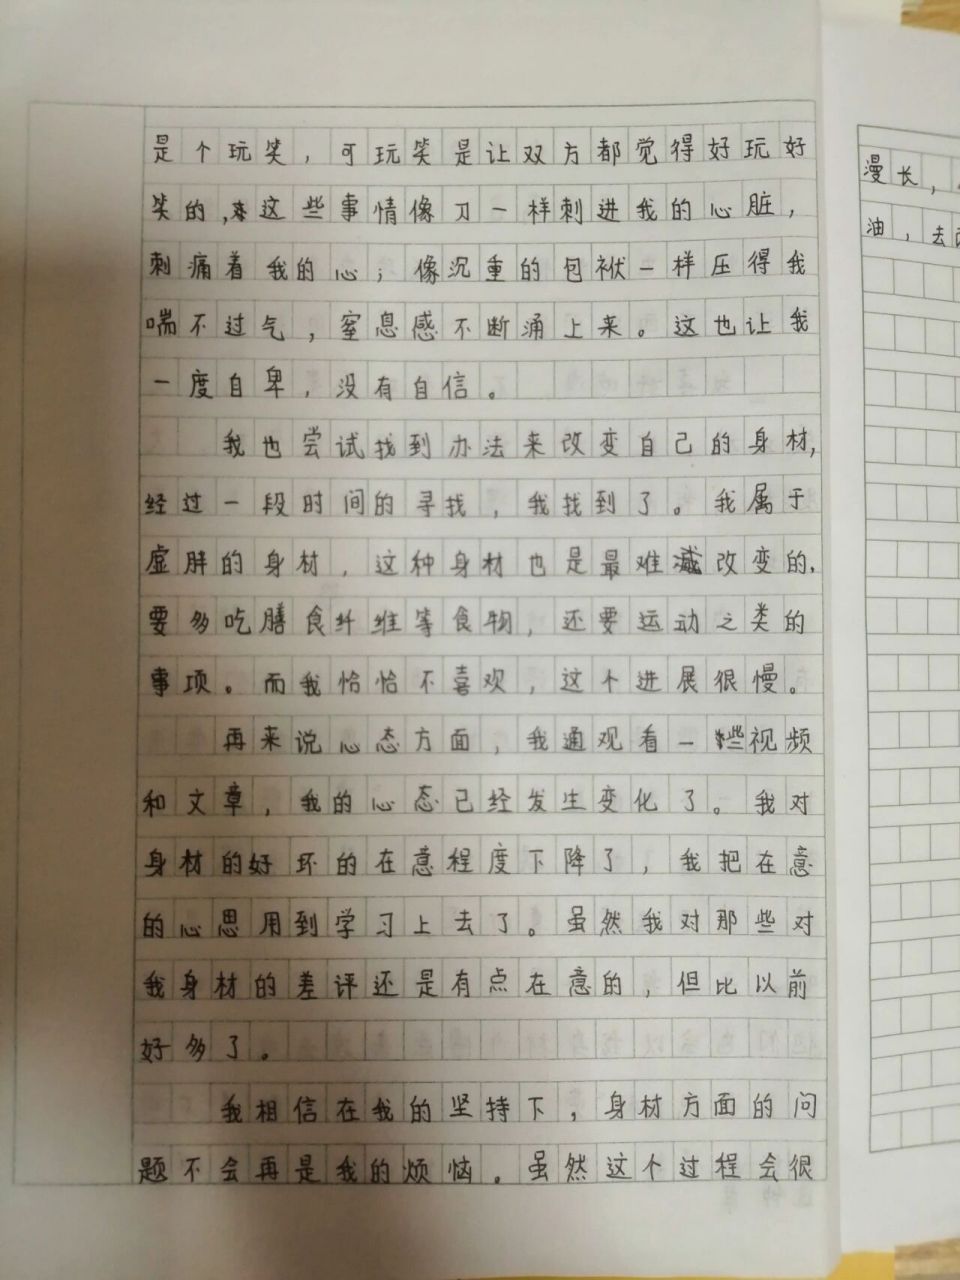 是个玩笑，可玩笑是让双方都觉得好玩好
笑的，这些事情像刀一样刺进我的心脏，
刺痛着我的心；像沉重的包袱一样压得我
喘不过气，窒息感不断涌上来。这也让我
一度自卑，没有自信。
我也尝试找到办法来改变自己的身材，
经过一段时间的寻找，我找到了。我属于
虚胖的身材，这种身材也是最难改变的，
要多吃膳食纤维等食物，还要运动之类的
事项。而我恰恰不喜观，这个进展很慢。
再来说心态方面，我通观看一些视频
和文章，我的心态已经发生变化了。我对
身材的好坏的在意程度下降了，我把在意
的心思用到学习上去了。虽然我对那些对
我身材的差评还是有点在意的，但比以前
好多了。
我相信在我的坚持下，身材方面的问
题不会再是我的烦恼。虽然这个过程会很
漫长，
油，去